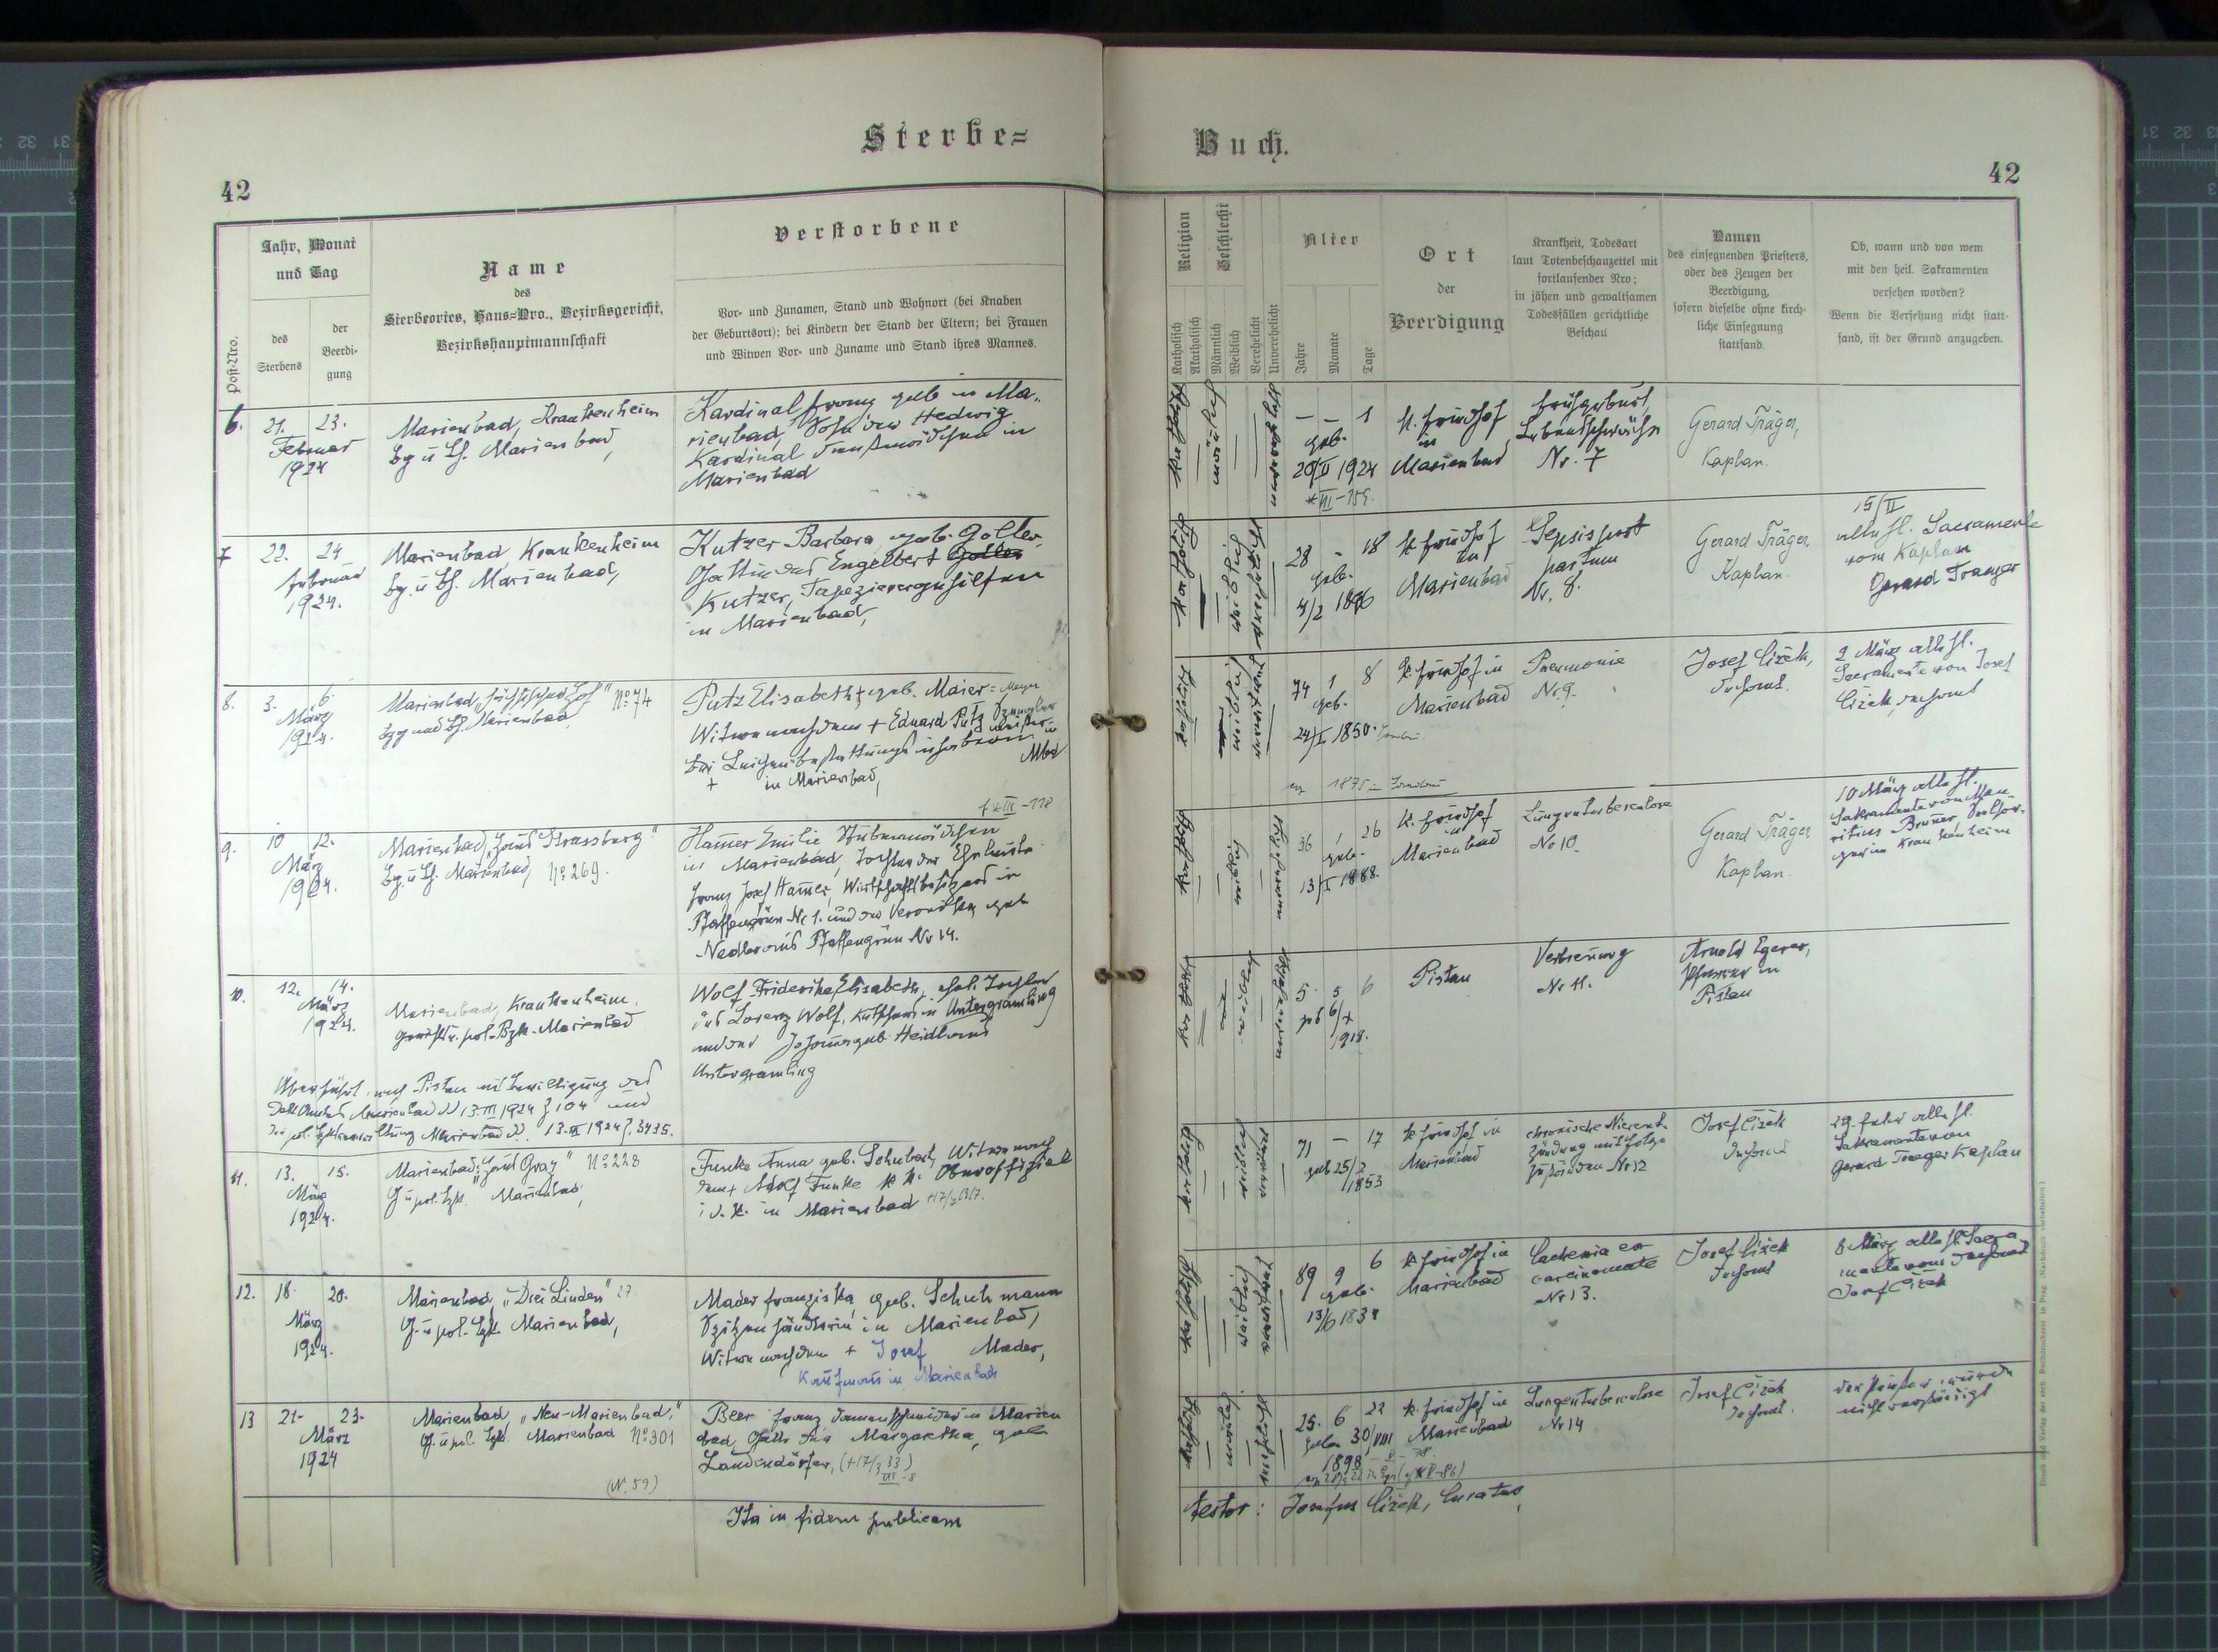 Sterbe=
Buch.
42
42
Post-Nro.
Jahr, Monat
und Tag
des
Sterbens
der
Beerdi-
gung
Name
des
Sterbeortes, Haus=Nro., Bezirksgericht,
Bezirkshauptmannschaft
Verstorbene
Vor- und Zunamen, Stand und Wohnort (bei Knaben
der Geburtsort); bei Kindern der Stand der Eltern; bei Frauen
und Witwen Vor- und Zuname und Stand ihres Mannes.
Religion
Katholisch
Akatholisch
Geschlecht
Männlich
Weiblich
Verehelicht
Unverehelicht
Alter
Jahre
Monate
Tage
Ort
der
Beerdigung
Krankheit, Todesart
laut Totenbeschauzettel mit
fortlaufender Nro;
in jähen und gewaltsamen
Todesfällen gerichtliche
Beschau
Namen
des einsegnenden Priesters,
oder des Zeugen der
Beerdigung,
sofern dieselbe ohne kirch-
liche Einsegnung
stattfand.
Ob, wann und von wem
mit den heil. Sakramenten
versehen worden?
Wenn die Versehung nicht statt-
fand, ist der Grund anzugeben.
6.
21. 23.
Februar
1924
Marienbad, Krankenheim
Bg. u Bh. Marienbad,
Kardinal Franz geb in Ma-
rienbad, Sohn der Hedwig
Kardinal Dienstmädchen in
Marienbad
katholisch
männlich
unverehelicht
– – 1
geb.
20/II 1924
k. Friedhof
in
Marienbad
Frühgeburt,
Lebensschwäche
Nr. 7
Gerard Träger,
Kaplan.
7
22. 24
Februar
1924.
Marienbad, Krankenheim
Bg. u Bh. Marienbad,
Kutzer Barbara, geb. Goller,
Gattin des Engelbert Goller
Kutzer, Tapezierergehilfen
in Marienbad,
katholisch
weiblich
verehelicht
28 – 18
geb.
4/2 1896
k. Friedhof
in
Marienbad
Sepsis post
partum
Nr. 8.
Gerard Träger,
Kaplan.
15/II
alle hl. Sacramente
vom Kaplan
Gerard Traeger
8.
3. 6.
März
1924.
Marienbad, Nº 74
Bzg und Bh. Marienbad
Putz Elisabeth, geb. Maier = Meyer
Witwe nach dem + Eduard Putz
in Marienbad,
Mbd
katholisch
weiblich
verwitwet
74 1 8
geb.
24/I 1850.
k. Friedhof in
Marienbad
Pneumonie
Nr. 9.
Josef Cizek,
Dechant.
2 März alle hl.
Sacramente von Josef
Cizek, Dechant
9.
10 12.
März
1924.
Marienbad, Haus "Strassburg"
Bg. u Bh. Marienbad, Nº 269.
Hamer Emilie Stubenmädchen
in Marienbad, Tochter der Eheleute
Franz Josef Hamer, Wirtschaftsbesitzers in
Pfaffengrün Nr 1. und der Veronika geb
Nadler aus Pfaffengrün Nr 14.
katholisch
weiblich
unverehelicht
36 1 26
geb.
13/I 1888.
k. Friedhof
in
Marienbad
Lungentuberculose
No 10.
Gerard Träger,
Kaplan.
10 März alle hl.
Sakramente von Mau-
ritius Brunner
im Krankenheim
10.
12. 14.
März
1924.
Marienbad, Krankenheim.
Marienbad
Überführt nach Pistau mit Bewilligung des
Marienbad 13. III 1924 Z 104 und
Marienbad 13. III 1924 Z. 3435.
Wolf Friderike Elisabeth, ehel. Tochter
des Lorenz Wolf, Kutschers in Untergramling
und der Johanna geb. Heidl aus
Untergramling
katholisch
weiblich
unverehelicht
5. 5 6
geb 6/X
1918.
Pistau
Verbrennung
Nr 11.
Arnold Egerer,
Pfarrer in
Pistau
11.
13. 15.
März
1924.
Marienbad, "Haus Graz" Nº 228
Marienbad,
Funke Anna geb. Schubert, Witwe nach
dem + Adolf Funke k. k. Oberoffizial
i. d. R. in Marienbad
katholisch
weiblich
verwitwet
71 – 17
geb 25/2
1853
k. Friedhof in
Marienbad
chronische Nierenent-
zündung mit Folge-
zuständen Nr 12
Josef Cizek
Dechant
29. Feber alle hl.
Sakramente von
Gerard Traeger Kaplan
12.
18. 20.
März
1924.
Marienbad, "Drei Linden" 27
G. u pol. Bzk. Marienbad,
Mader Franziska, geb. Schuhmann
Spitzenhändlerin in Marienbad,
Witwe nach dem + Josef Mader,
Kaufmann in Marienbad
katholisch
weiblich
verwitwet
89 9 6
geb.
13/6 1834
k. Friedhof in
Marienbad
Cachexia ex
carcinomate
Nr 13.
Josef Cizek
Dechant
8 März alle hl. Sacra-
mente vom Dechant
Josef Cizek
13
21. 23.
März
1924
Marienbad, "Neu-Marienbad,"
G. u pol. Bzk. Marienbad Nº 301
(Nr. 59)
Beer Franz Damenschneider in Marien
bad, Gatte der Margaretha, geb
Landendörfer, (+17/3 33)
katholisch
männlich
verehelicht
25. 6 22
geb. 30/VIII
1898
k. Friedhof in
Marienbad
Lungentuberculose
Nr 14
Josef Cizek
Dechant.
der Priester wurde
nicht verständigt
Ita in fidem publicam
testor: Josefus Cizek, Curatus
Druck und Verlag der